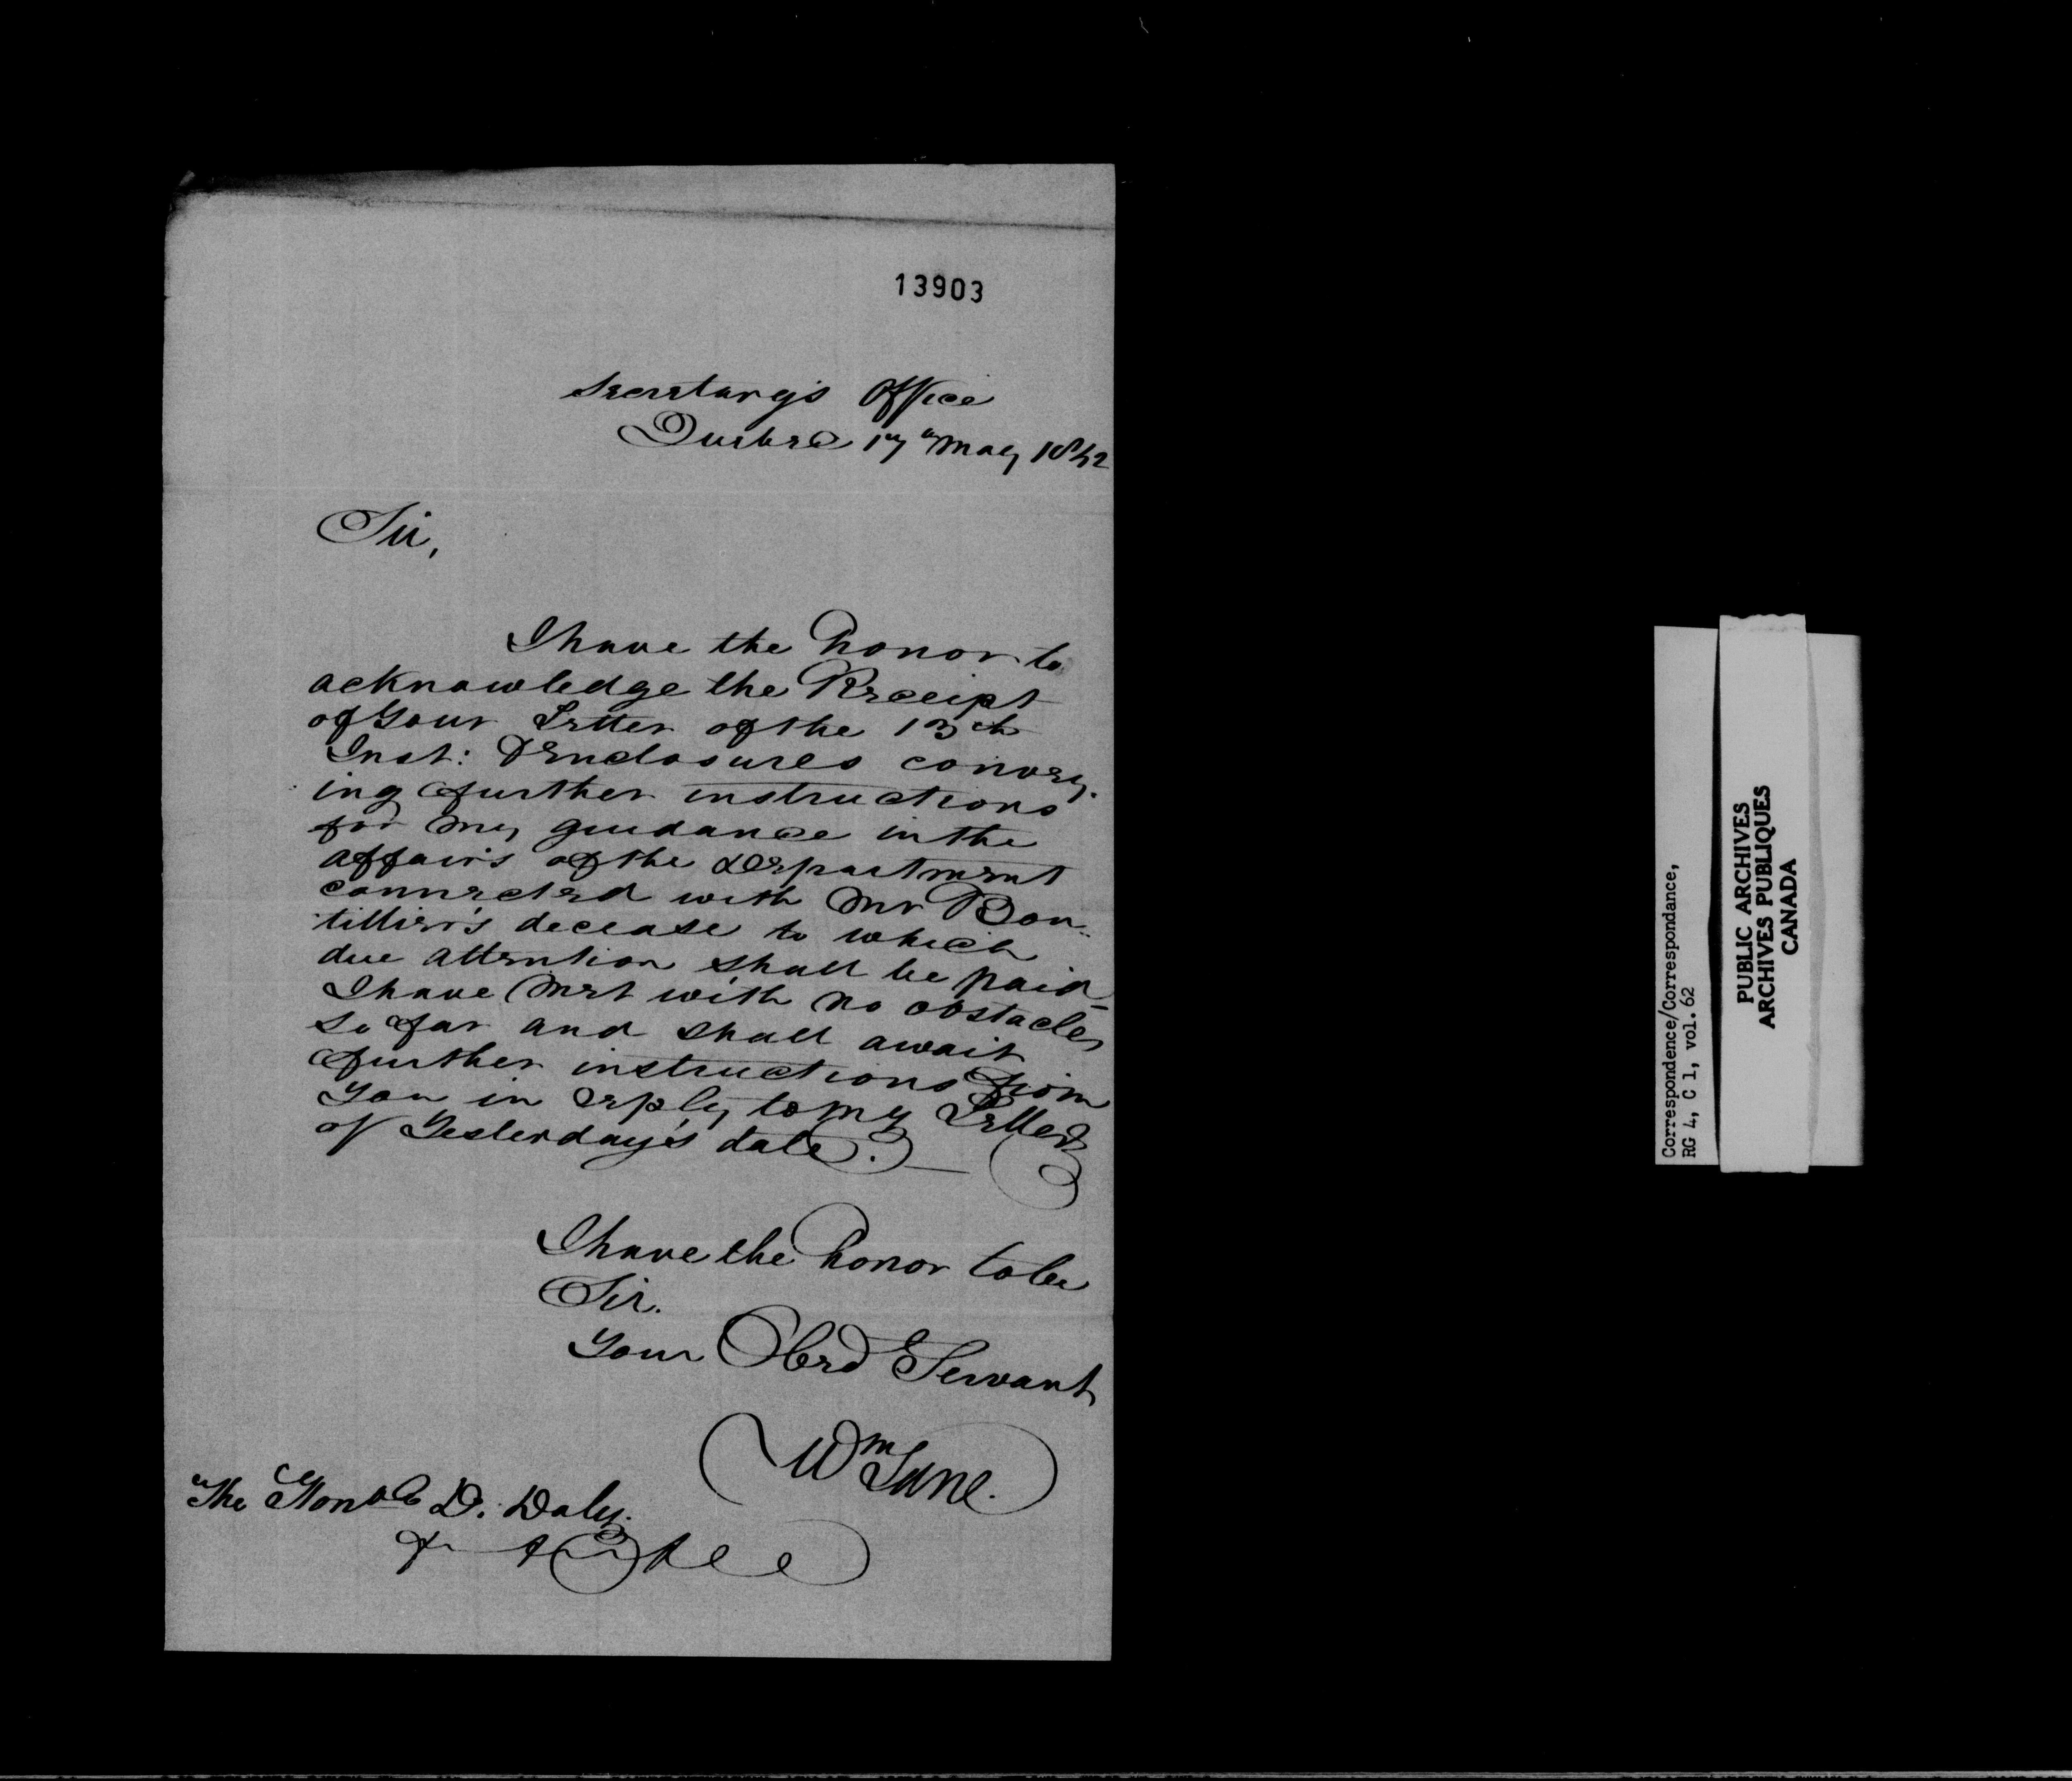 13903
Secretary's Office
Quebec 17th May 1842
Sir,
I have the honor to
acknowledge the Receipt
of Your Letter of the 13th
Inst: & Enclosures convey-
ing further instructions
for my guidance in the
affairs of the Department
connected with Mr Bou-
tillier's decease to which
due attention shall be paid-
I have met with no obstacles
so far and shall await
further instructions from
You in reply to my Letter
of Yesterday's date.
I have the honor to be
Sir.
Your Obed Servant
Wm Lane.
The Honble D. Daly.
&c &c &c
Correspondence/Correspondance,
RG 4, C 1, vol. 62
PUBLIC ARCHIVES
ARCHIVES PUBLIQUES
CANADA